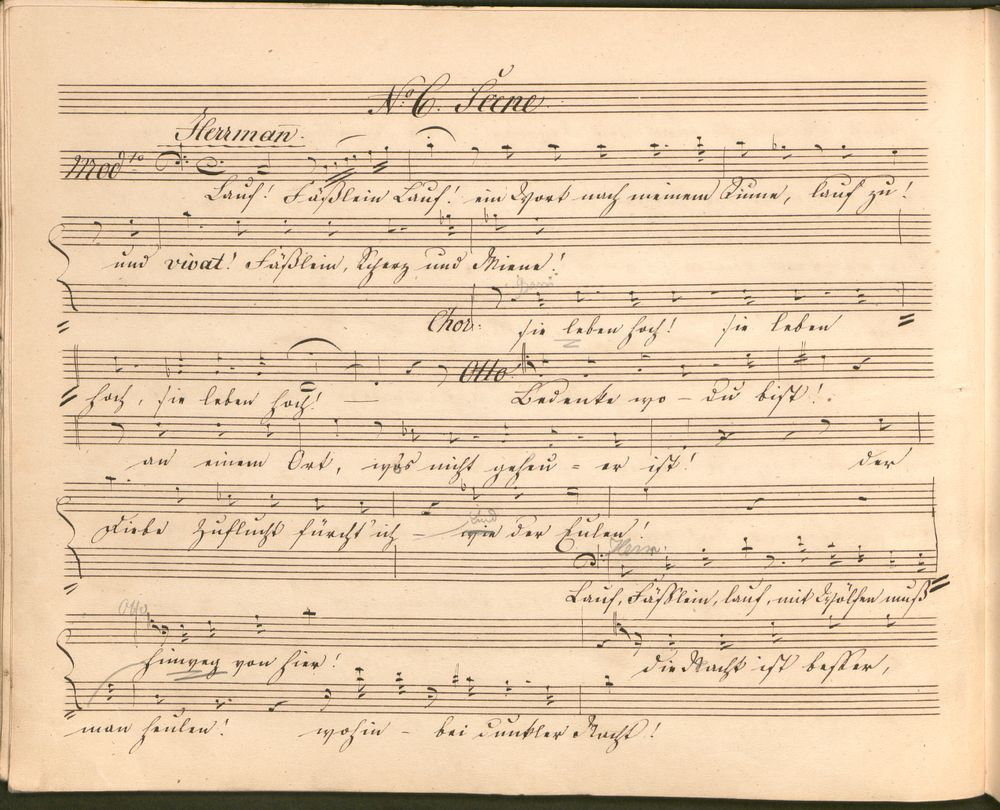 No. 6. Scene
Herrman.
Modto
Lauf! Fäßlein Lauf! ein Wort nach meinem Sinne, lauf zu!
und vivat! Fäßlein, Scherz und Minne!
Chor: sie leben hoch! sie leben
hoch, sie leben hoch! — Otto Bedenke wo – du bist!
an einem Ort, wo's nicht geheu = er ist! der
Diebe Zuflucht fürcht' ich – wie der Eulen!
und
Herr:
Lauf, Fäßlein, lauf, mit Wölfen muß
Otto
hinweg von hier! die Nacht ist besser,
man heulen! wohin – bei dunkler Nacht!